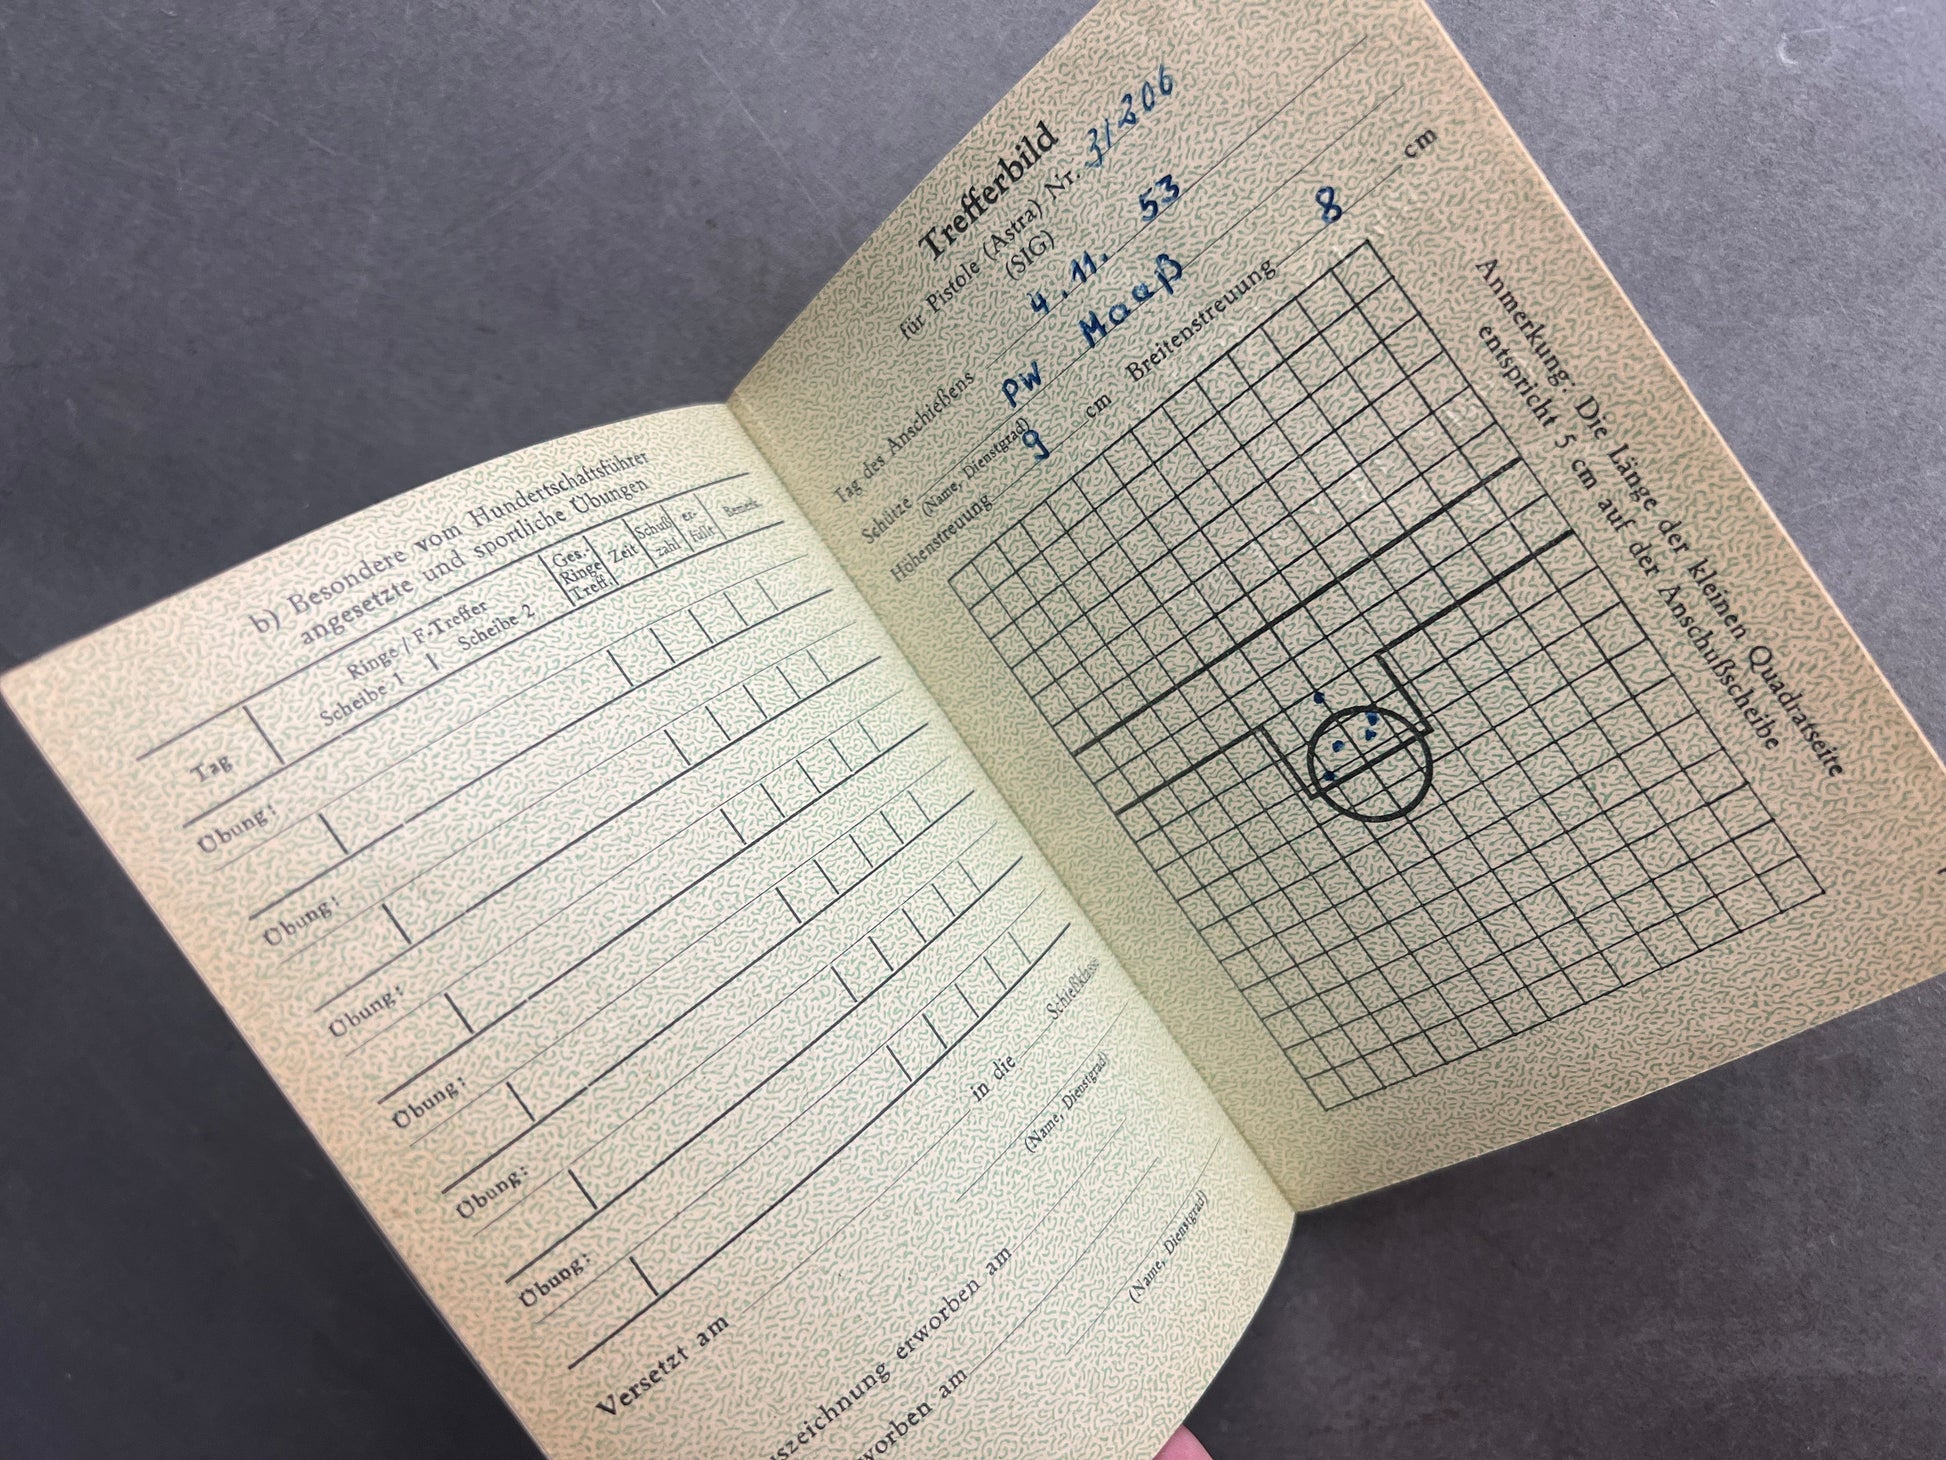 b) Besondere vom Hundertschaftsführer
angesetzte und sportliche Übungen
Tag
Ringe / F-Treffer
Scheibe 1 | Scheibe 2
Ges.-
Ringe
Treff.
Zeit
Schuß
zahl
er-
füllt
Bemerk.
Übung:
Übung:
Übung:
Übung:
Übung:
Übung:
Versetzt am in die Schießklasse
(Name, Dienstgrad)
szeichnung erworben am
(Name, Dienstgrad)
worben am
Trefferbild
für Pistole (Astra) Nr. 31206
(SIG)
Tag des Anschießens 4.11.53
Schütze PW Maaß
(Name, Dienstgrad)
Höhenstreuung 9 cm Breitenstreuung 8 cm
Anmerkung: Die Länge der kleinen Quadratseite
entspricht 5 cm auf der Anschußscheibe